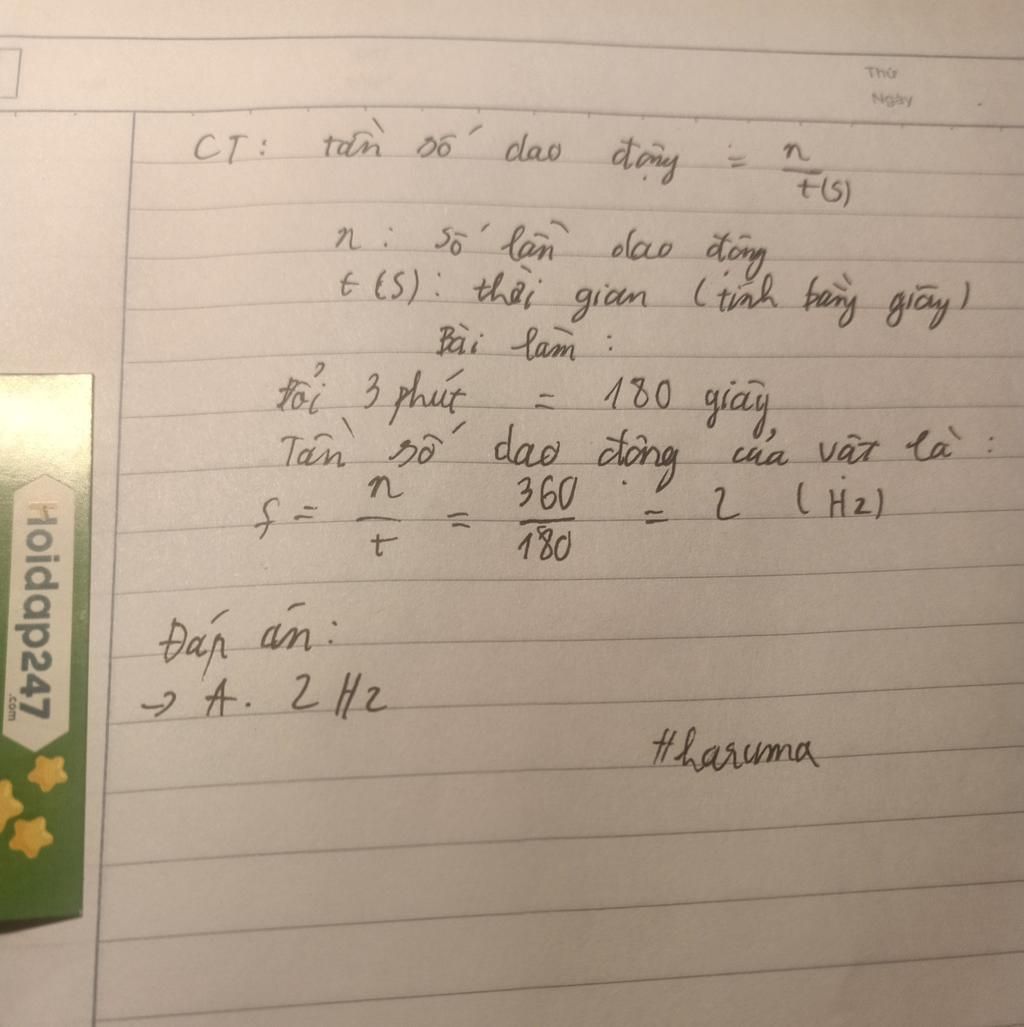 Thứ
Ngày
CT: tần số dao động = n/t(s)
n: số lần dao động
t(s): thời gian (tính bằng giây)
Bài làm:
Đổi 3 phút = 180 giây
Tần số dao động của vật là:
f = n/t = 360/180 = 2 (Hz)
Đáp án:
→ A. 2 Hz
#haruma
Hoidap247
.com